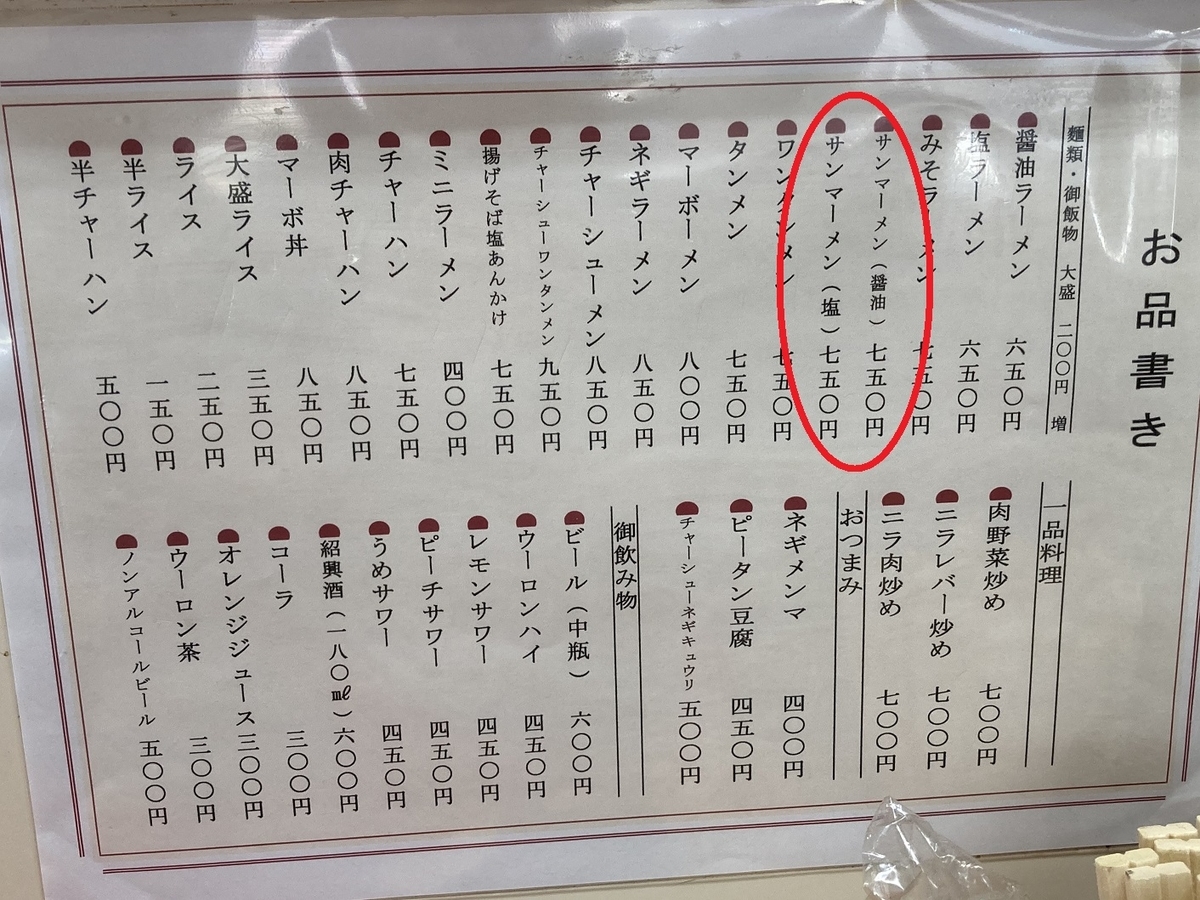 お品書き
麺類・御飯物 大盛 二〇〇円 増
醤油ラーメン 六五〇円
塩ラーメン 六五〇円
みそラーメン 七五〇円
サンマーメン(醤油) 七五〇円
サンマーメン(塩) 七五〇円
ワンタンメン 七五〇円
タンメン 七五〇円
マーボーメン 八〇〇円
ネギラーメン 八五〇円
チャーシューメン 八五〇円
チャーシューワンタンメン 九五〇円
揚げそば塩あんかけ 七五〇円
ミニラーメン 四〇〇円
チャーハン 七五〇円
肉チャーハン 八五〇円
マーボ丼 八五〇円
大盛ライス 三五〇円
ライス 二五〇円
半ライス 一五〇円
半チャーハン 五〇〇円
一品料理
肉野菜炒め 七〇〇円
ニラレバー炒め 七〇〇円
ニラ肉炒め 七〇〇円
おつまみ
ネギメンマ 四〇〇円
ピータン豆腐 四五〇円
チャーシューネギキュウリ 五〇〇円
御飲み物
ビール(中瓶) 六〇〇円
ウーロンハイ 四五〇円
レモンサワー 四五〇円
ピーチサワー 四五〇円
うめサワー 四五〇円
紹興酒(一八〇㎖) 六〇〇円
コーラ 三〇〇円
オレンジジュース 三〇〇円
ウーロン茶 三〇〇円
ノンアルコールビール 五〇〇円